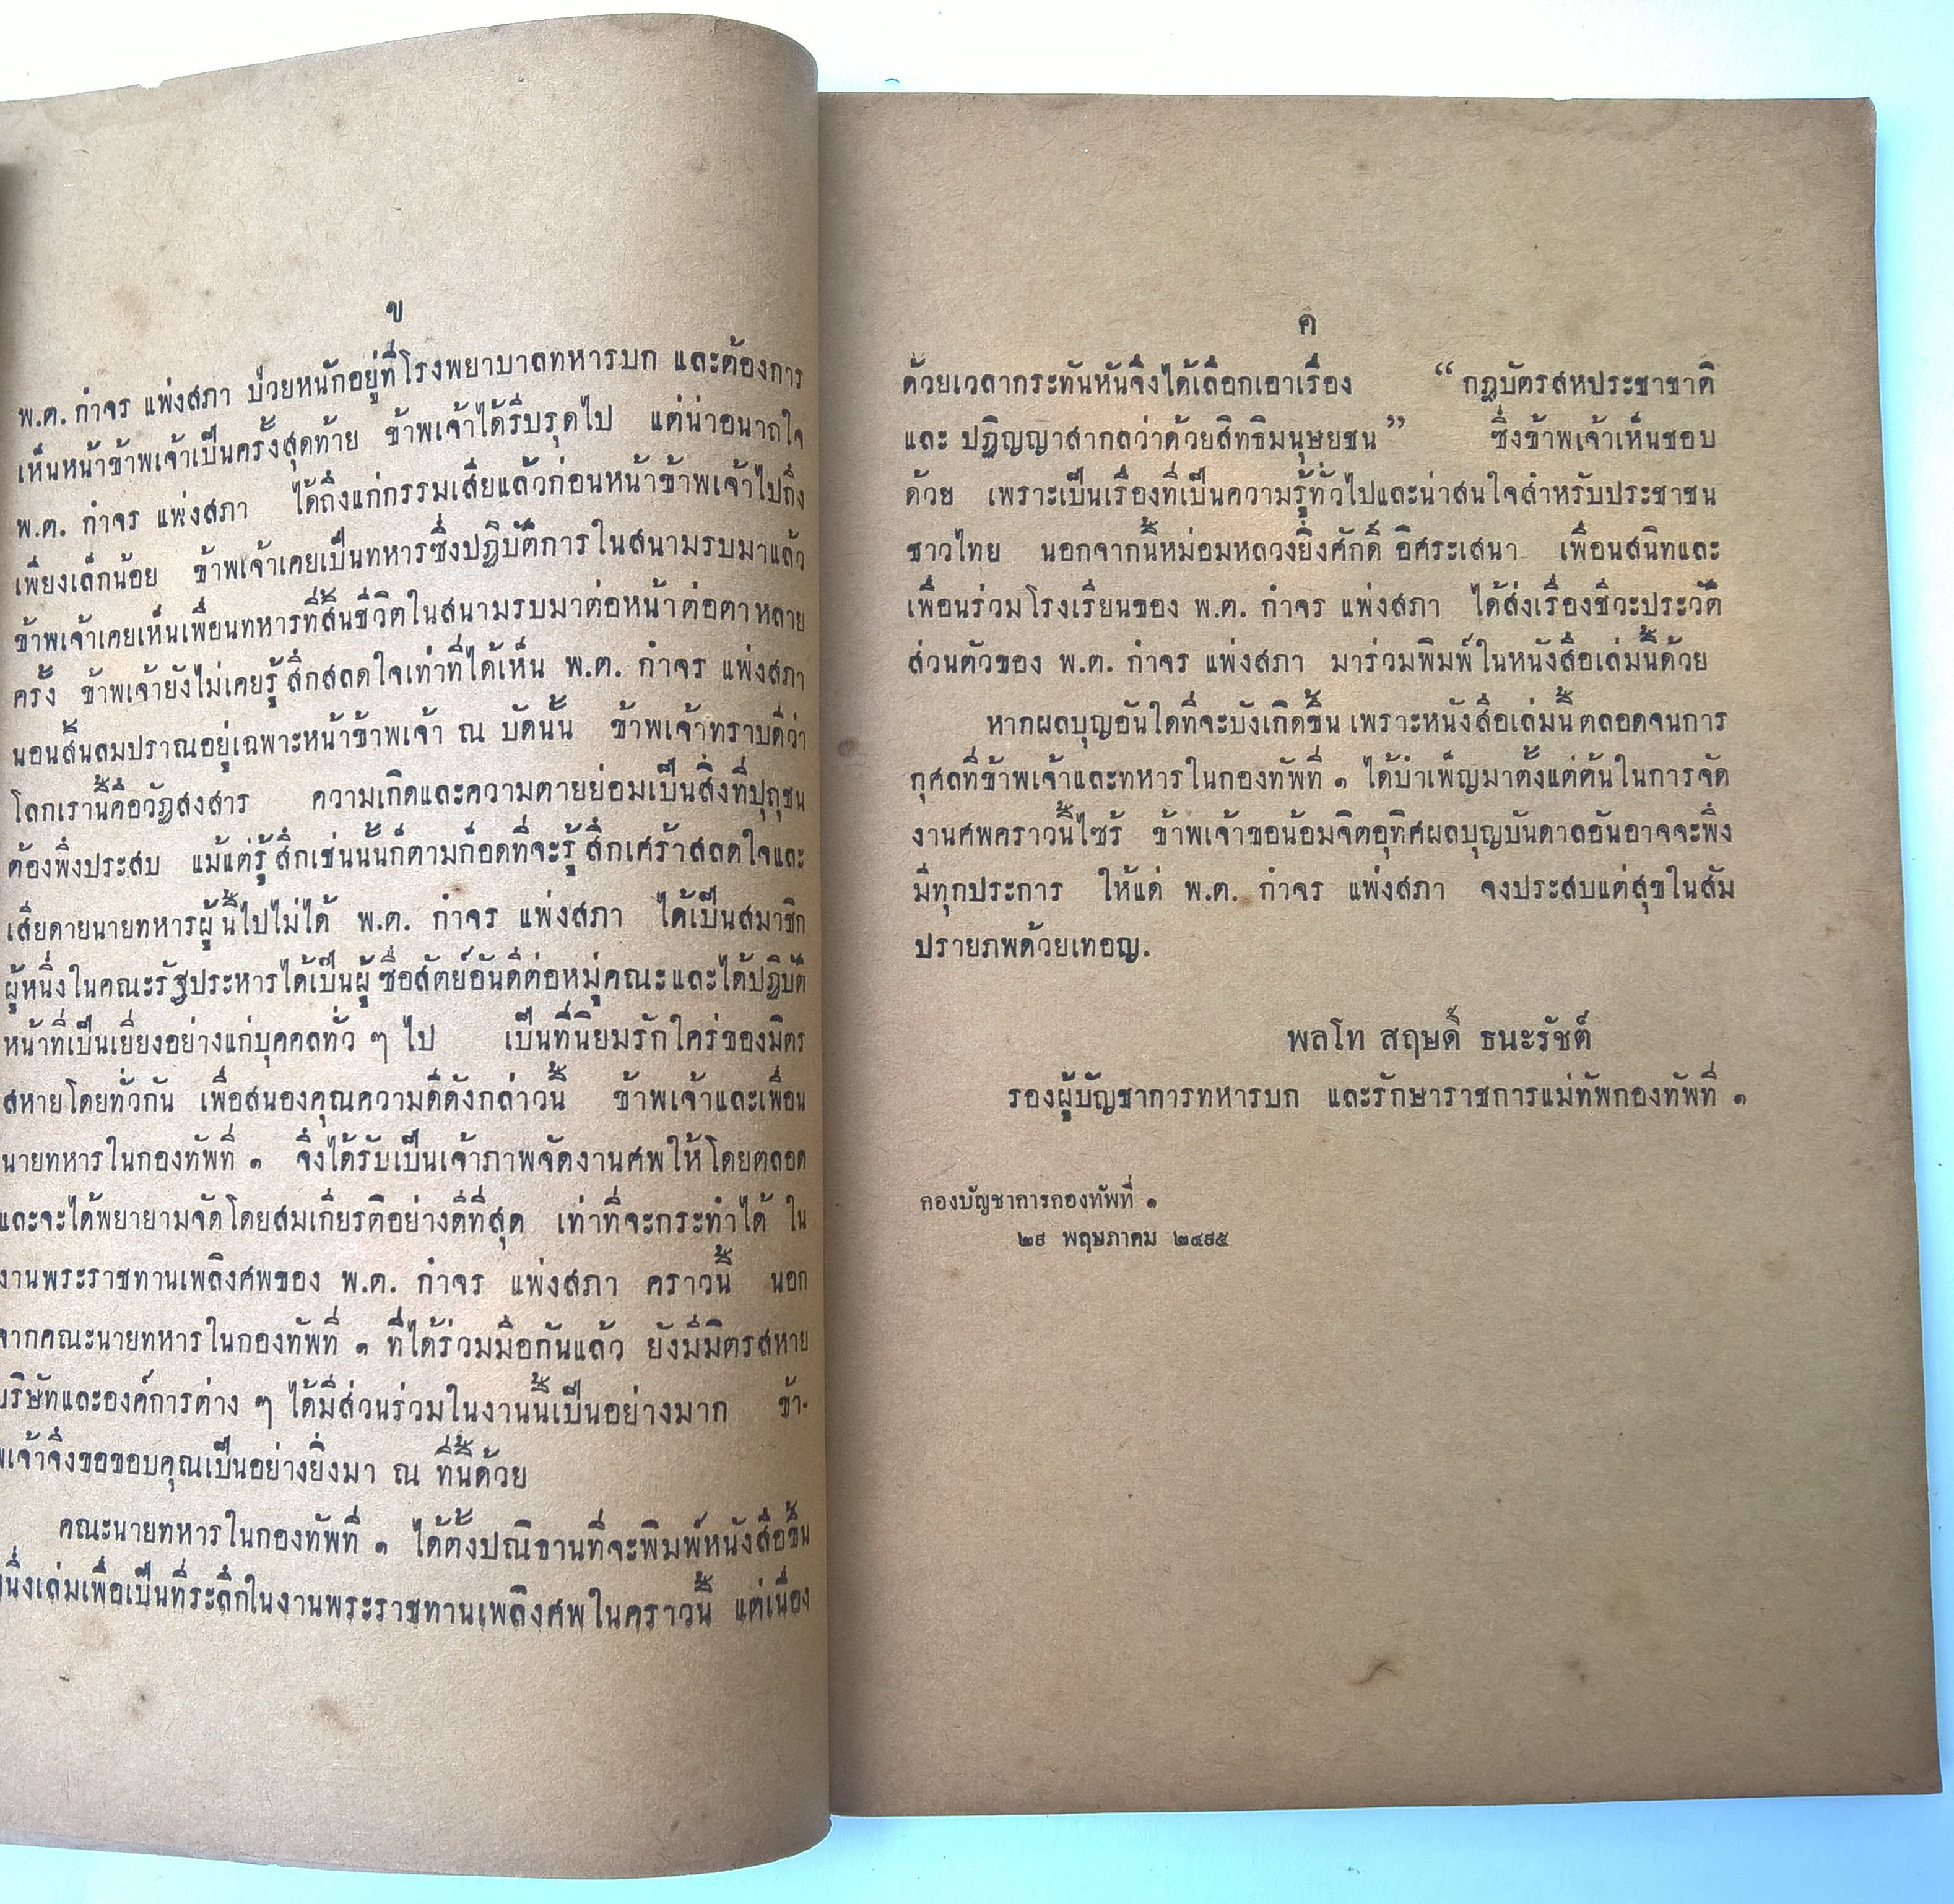 ข
พ.ต. กำจร แพ่งสภา ป่วยหนักอยู่ที่โรงพยาบาลทหารบก และต้องการ
เห็นหน้าข้าพเจ้าเป็นครั้งสุดท้าย ข้าพเจ้าได้รีบรุดไป แต่น่าอนาถใจ
พ.ต. กำจร แพ่งสภา ได้ถึงแก่กรรมเสียแล้วก่อนหน้าข้าพเจ้าไปถึง
เพียงเล็กน้อย ข้าพเจ้าเคยเป็นทหารซึ่งปฏิบัติการในสนามรบมาแล้ว
ข้าพเจ้าเคยเห็นเพื่อนทหารที่สิ้นชีวิตในสนามรบมาต่อหน้าต่อตาหลาย
ครั้ง ข้าพเจ้ายังไม่เคยรู้สึกสลดใจเท่าที่ได้เห็น พ.ต. กำจร แพ่งสภา
นอนสิ้นลมปราณอยู่เฉพาะหน้าข้าพเจ้า ณ บัดนั้น ข้าพเจ้าทราบดีว่า
โลกเรานี้คือวัฏสงสาร ความเกิดและความตายย่อมเป็นสิ่งที่ปุถุชน
ต้องพึงประสบ แม้แต่รู้สึกเช่นนั้นก็ตามก็อดที่จะรู้สึกเศร้าสลดใจและ
เสียดายนายทหารผู้นี้ไปไม่ได้ พ.ต. กำจร แพ่งสภา ได้เป็นสมาชิก
ผู้หนึ่งในคณะรัฐประหารได้เป็นผู้ซื่อสัตย์อันดีต่อหมู่คณะและได้ปฏิบัติ
หน้าที่เป็นเยี่ยงอย่างแก่บุคคลทั่ว ๆ ไป เป็นที่นิยมรักใคร่ของมิตร
สหายโดยทั่วกัน เพื่อสนองคุณความดีดังกล่าวนี้ ข้าพเจ้าและเพื่อน
นายทหารในกองทัพที่ ๑ จึงได้รับเป็นเจ้าภาพจัดงานศพให้โดยตลอด
และจะได้พยายามจัดโดยสมเกียรติอย่างดีที่สุด เท่าที่จะกระทำได้ ใน
งานพระราชทานเพลิงศพของ พ.ต. กำจร แพ่งสภา คราวนี้ นอก
จากคณะนายทหารในกองทัพที่ ๑ ที่ได้ร่วมมือกันแล้ว ยังมีมิตรสหาย
บริษัทและองค์การต่าง ๆ ได้มีส่วนร่วมในงานนี้เป็นอย่างมาก ข้า-
พเจ้าจึงขอขอบคุณเป็นอย่างยิ่งมา ณ ที่นี้ด้วย
คณะนายทหารในกองทัพที่ ๑ ได้ตั้งปณิธานที่จะพิมพ์หนังสือขึ้น
หนึ่งเล่มเพื่อเป็นที่ระลึกในงานพระราชทานเพลิงศพในคราวนี้ แต่เนื่อง
ค
ด้วยเวลากระทันหันจึงได้เลือกเอาเรื่อง “กฎบัตรสหประชาชาติ
และ ปฏิญญาสากลว่าด้วยสิทธิมนุษยชน” ซึ่งข้าพเจ้าเห็นชอบ
ด้วย เพราะเป็นเรื่องที่เป็นความรู้ทั่วไปและน่าสนใจสำหรับประชาชน
ชาวไทย นอกจากนี้หม่อมหลวงยิ่งศักดิ์ อิศระเสนา เพื่อนสนิทและ
เพื่อนร่วมโรงเรียนของ พ.ต. กำจร แพ่งสภา ได้ส่งเรื่องชีวะประวัติ
ส่วนตัวของ พ.ต. กำจร แพ่งสภา มาร่วมพิมพ์ในหนังสือเล่มนี้ด้วย
หากผลบุญอันใดที่จะบังเกิดขึ้น เพราะหนังสือเล่มนี้ ตลอดจนการ
กุศลที่ข้าพเจ้าและทหารในกองทัพที่ ๑ ได้บำเพ็ญมาตั้งแต่ต้นในการจัด
งานศพคราวนี้ไซร้ ข้าพเจ้าขอน้อมจิตอุทิศผลบุญบันดาลอันอาจจะพึง
มีทุกประการ ให้แด่ พ.ต. กำจร แพ่งสภา จงประสบแต่สุขในสัม
ปรายภพด้วยเทอญ.
พลโท สฤษดิ์ ธนะรัชต์
รองผู้บัญชาการทหารบก และรักษาราชการแม่ทัพกองทัพที่ ๑
กองบัญชาการกองทัพที่ ๑
๒๙ พฤษภาคม ๒๔๙๕